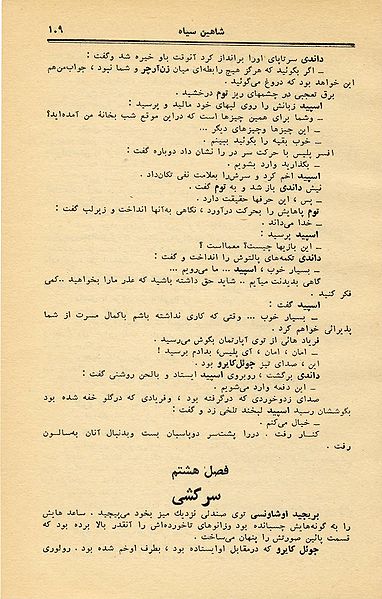 شاهین سیاه ۱۰۹
داندی سرتاپای اورا برانداز کرد آنوقت باو خیره شد وگفت :
ـ اگر بگوئید که هرگز هیچ رابطه‌ای میان زن‌آرچر و شما نبود ، جواب‌من‌هم
این خواهد بود که دروغ می‌گوئید .
برق تعجبی در چشمهای ریز توم درخشید .
اسپید زبانش را روی لبهای خود مالید و پرسید :
ـ وشما برای همین چیزها است که دراین موقع شب بخانهٔ من آمده‌اید؟
ـ این چیزها وچیزهای دیگر ...
ـ خوب بقیه را بگوئید ببینم .
افسر پلیس با حرکت سر در را نشان داد دوباره گفت :
ـ بگذارید وارد بشویم .
اسپید اخم کرد و سرش‌را بعلامت نفی تکان‌داد .
نیش داندی باز شد و به توم گفت .
ـ پس ، این حرفها حقیقت دارد .
توم پاهایش را بحرکت درآورد ، نگاهی به‌آنها انداخت و زیرلب گفت :
ـ خدا می‌داند .
اسپید پرسید :
ـ این بازیها چیست؟ معمااست ؟
داندی تکمه‌های پالتوش را انداخت و گفت :
ـ بسیار خوب ، اسپید ... ما می‌رویم ...
گاهی بدیدنت میآیم .. شاید حق داشته باشید که عذر مارا بخواهید ..کمی
فکر کنید .
اسپید گفت :
ـ بسیار خوب ... وقتی که کاری نداشته باشم باکمال مسرت از شما
پذیرائی خواهم کرد .
فریاد هائی از توی آپارتمان بگوش می‌رسید .
ـ امان ، امان ، آی پلیس، بدادم برسید !
این ، صدای تیز جوئل‌کایرو بود .
داندی برگشت ، روبروی اسپید ایستاد و بالحن روشنی گفت :
ـ این دفعه وارد می‌شویم .
صدای زدوخوردی که درگرفته بود ، وفریادی که درگلو خفه شده بود
بگوششان رسید اسپید لبخند تلخی زد و گفت :
ـ خیال می‌کنم .
کنار رفت . دررا پشت‌سر دوپاسبان بست وبدنبال آنان به‌سالون
رفت .
فصل هشتم
سرکشی
بریجید اوشاونسی توی صندلی نزدیک میز بخود می‌پیچید . ساعد هایش
را به گونه‌هایش چسبانده بود وزانوهای تاخورده‌اش را آنقدر بالا برده بود که
قسمت پائین صورتش را پنهان می‌ساخت .
جوئل کایرو که درمقابل اوایستاده بود ، بطرف اوخم شده بود . رولوری